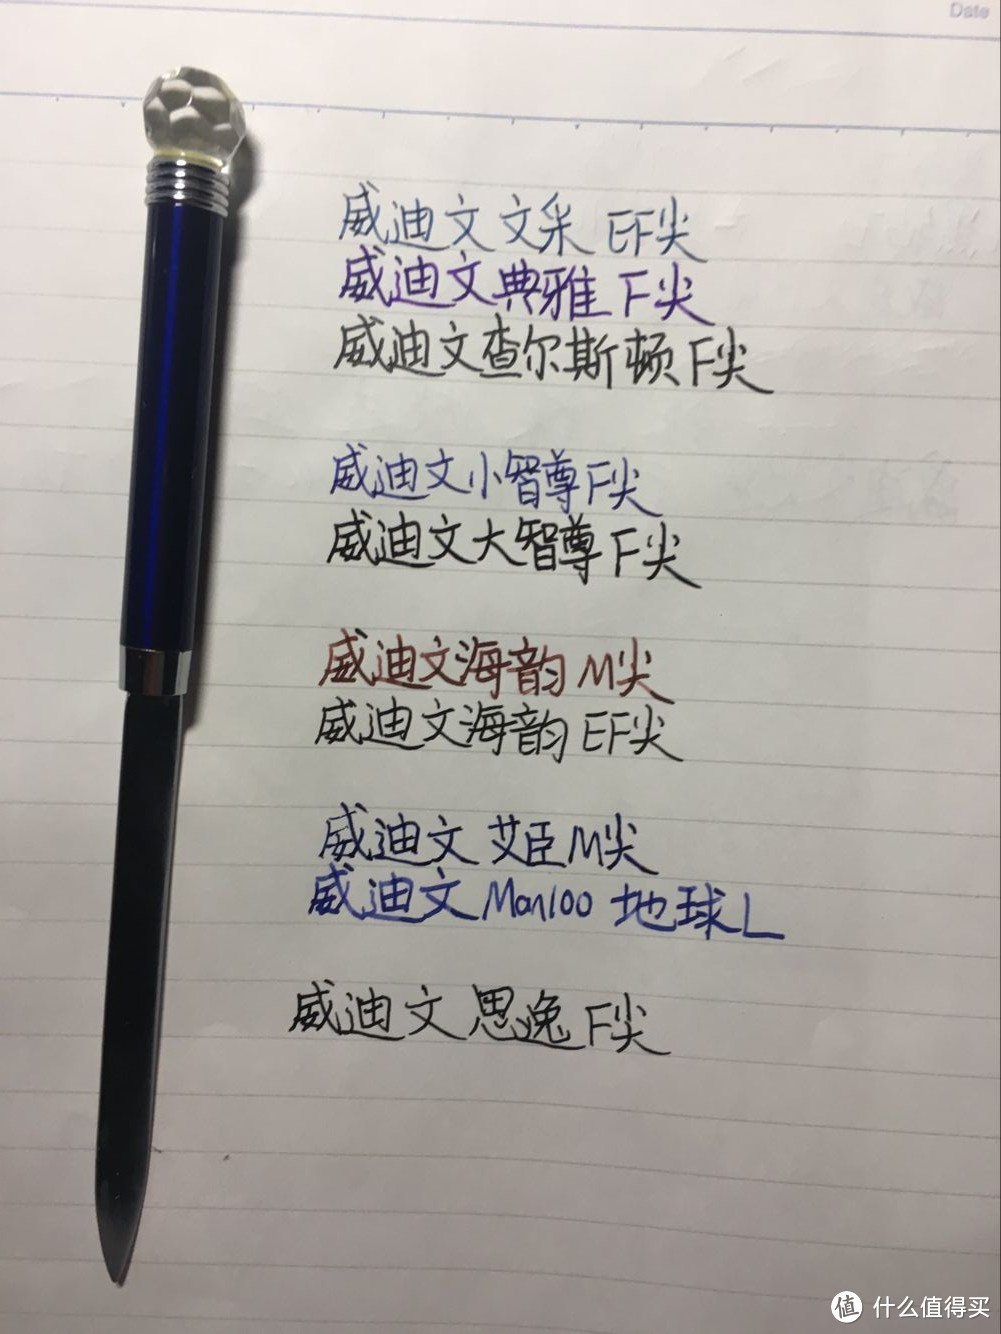 Date
威迪文文采 EF尖
威迪文典雅 F尖
威迪文查尔斯顿 F尖
威迪文小智尊F尖
威迪文大智尊F尖
威迪文海韵 M尖
威迪文海韵 EF尖
威迪文 艾臣M尖
威迪文Man100 地球L
威迪文 思逸 F尖
值 什么值得买